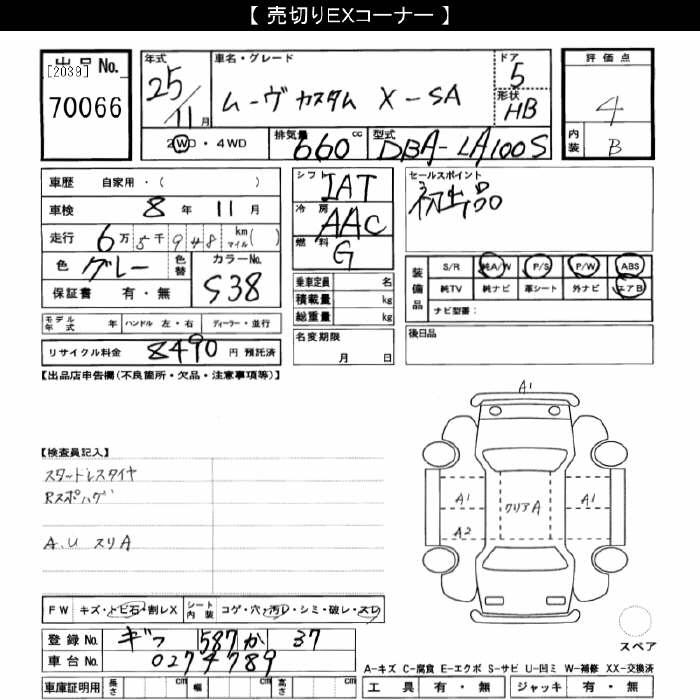 【 売切りEXコーナー 】
出品No.
[2039]
70066
年式 25/11月
車名・グレード
ムーヴ カスタム X-SA
ドア 5
形状 HB
評価点 4
内装 B
2WD・4WD
排気量 660 cc
型式 DBA-LA100S
車歴 自家用・( )
車検 8年 11月
走行 6万5千948 km マイル( )
色 グレー 色替 カラーNo. S38
保証書 有・無
モデル年式 年 ハンドル 左・右 ディーラー・並行
リサイクル料金 8490 円 預託済
シフト IAT
冷房 AAC
燃料 G
乗車定員 名
積載量 kg
総重量 kg
名変期限
月 日
セールスポイント
初出品
装備品
S/R 純A/W P/S P/W ABS
純TV 純ナビ 革シート 外ナビ エアB
ナビ型番:
後日品
【出品店申告欄(不良箇所・欠品・注意事項等)】
【検査員記入】
スタッドレスタイヤ
Rスポハゲ
A.U スリA
A1
A1
A2
クリアA
A1
スペア
FW キズ・トビ石・割レX
シート内装 コゲ・穴・汚レ・シミ・破レ・スレ
登録No. ギフ 587 か 37
車台No. 0274789
A-キズ C-腐食 E-エクボ S-サビ U-凹ミ W-補修 XX-交換済
車庫証明用 長さ cm 幅 cm 高さ cm
工具 有・無 ジャッキ 有・無